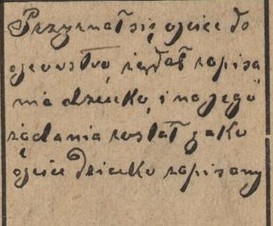 Przyznał się ojciec do
ojcowstva, żądał zapisa
nia dziecka, i na jego
żądania został jako
ojciec dziecka zapisany